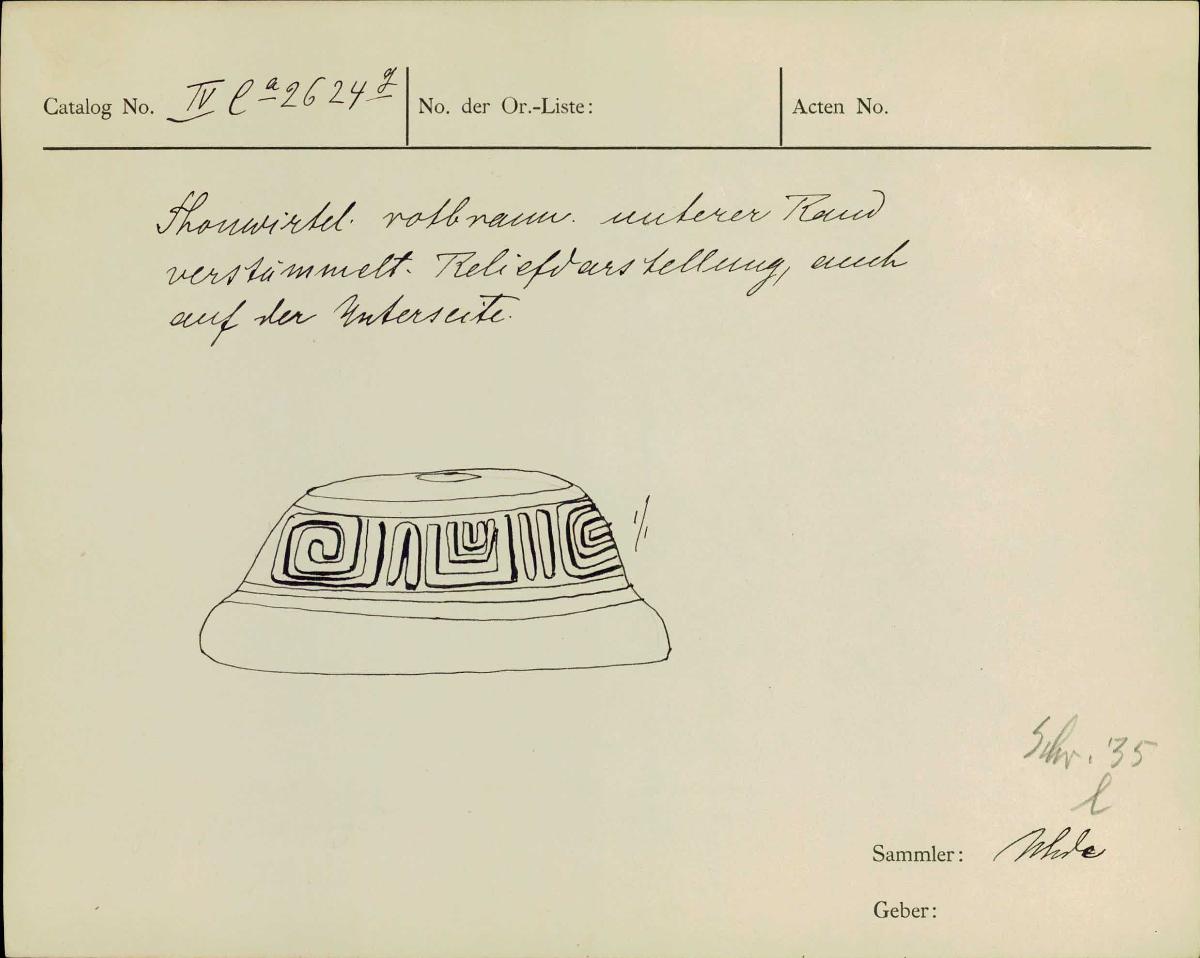 Catalog No. IV Ca 2624 g
No. der Or.-Liste:
Acten No.
Thonwirtel. rotbraun. unterer Rand
verstümmelt. Reliefdarstellung, auch
auf der Unterseite.
1/1
Schr. '35
l
Sammler: Uhde
Geber: